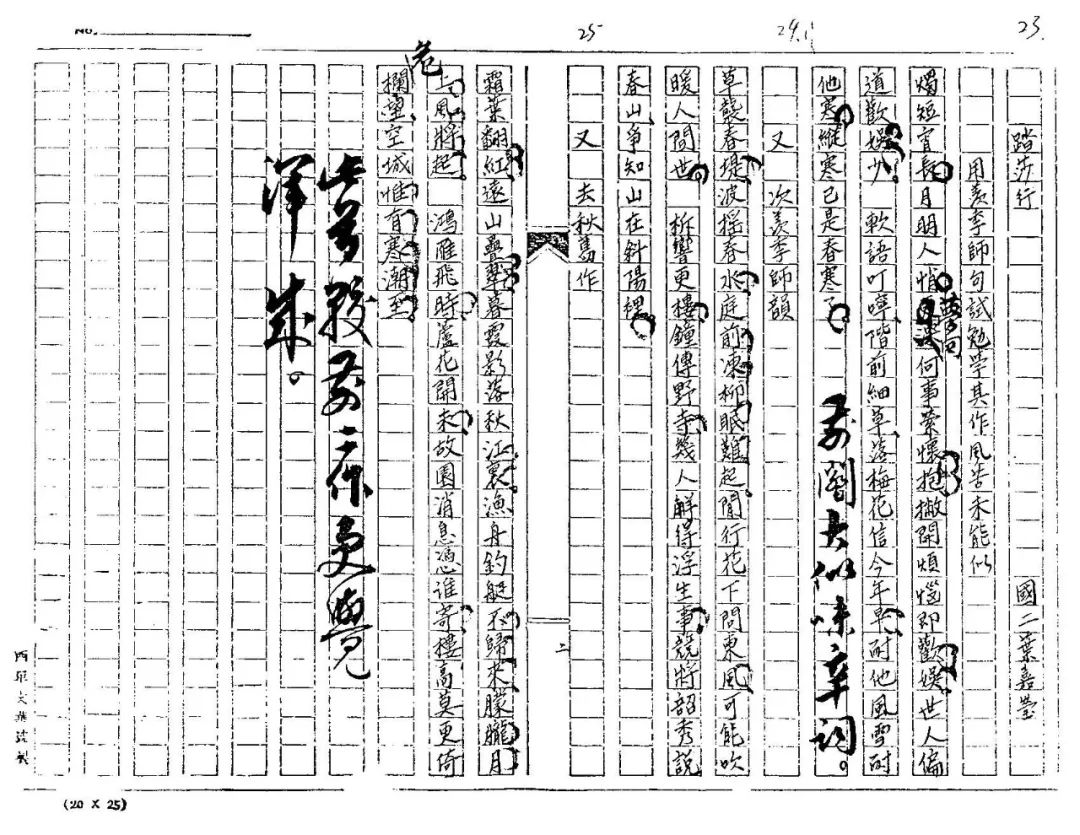 23.
24.
25
No.
踏莎行 國二葉嘉瑩
用羨季師句試勉學其作風苦未能似
燭短宵長月明人悄夢回何事縈懷抱撇開煩惱即歡娛世人偏
道歡娛少 軟語叮嚀階前細草落梅花信今年早耐他風雪耐
他寒縱寒已是春寒了
前闋大似味辛詞。
又 次羨季師韻
草襲春堤波搖春水庭前凍柳眠難起閒行花下問東風可能吹
暖人間世 柝響更樓鐘傳野寺幾人解得浮生事競將韶秀說
春山爭知山在斜陽裡
又 去秋舊作
二
霜葉翻紅遠山疊翠暮霞影落秋江裏漁舟釣艇不歸來朦朧月
上風將起 鴻雁飛時蘆花開未故園消息憑誰寄樓高莫更倚
危欄望空城惟有寒潮至
此首較前二作更覺
渾成。
(20 X 25)